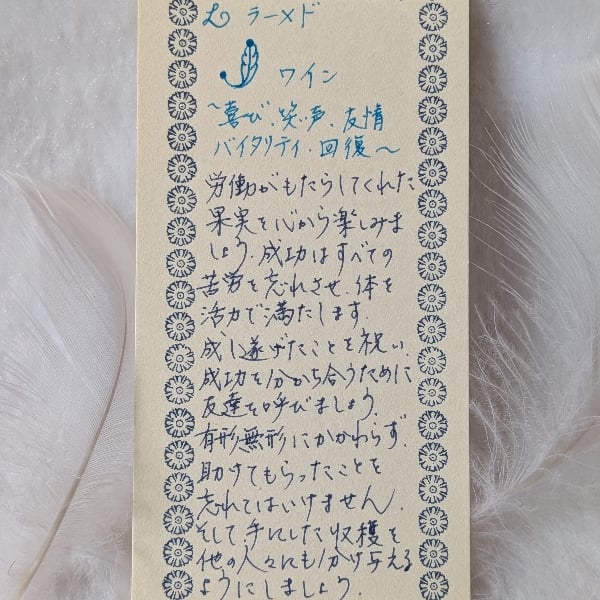 ラーメド
ワイン
～喜び、笑い声、友情
バイタリティ・回復～
労働がもたらしてくれた
果実を心から楽しみま
しょう。成功はすべての
苦労を忘れさせ、体を
活力で満たします。
成し遂げたことを祝い
成功を分かち合うために
友達を呼びましょう。
有形無形にかかわらず、
助けてもらったことを
忘れてはいけません。
そして手にした収穫を
他の人々にも分け与える
ようにしましょう。